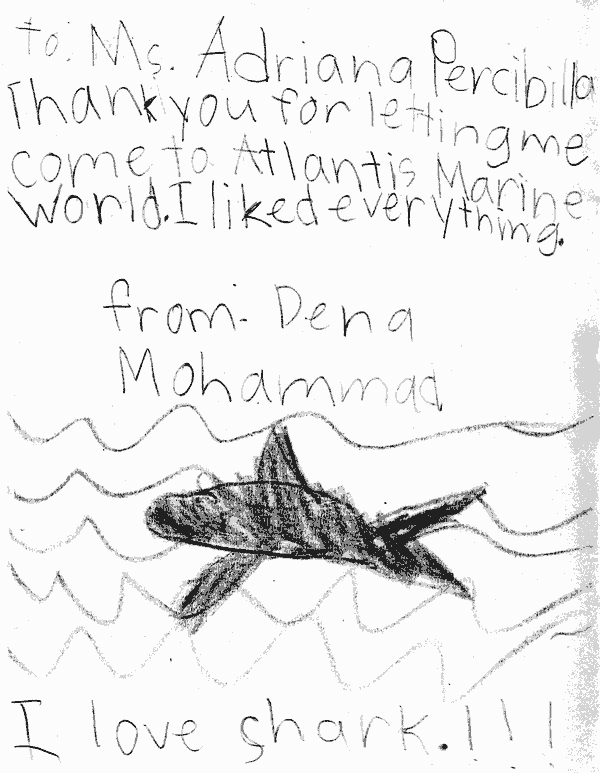 to: Ms. Adriana Percibilla
Thank you for letting me
come to Atlantis Marine
World. I liked everything.
from: Dena
Mohammad
I love shark.!!!